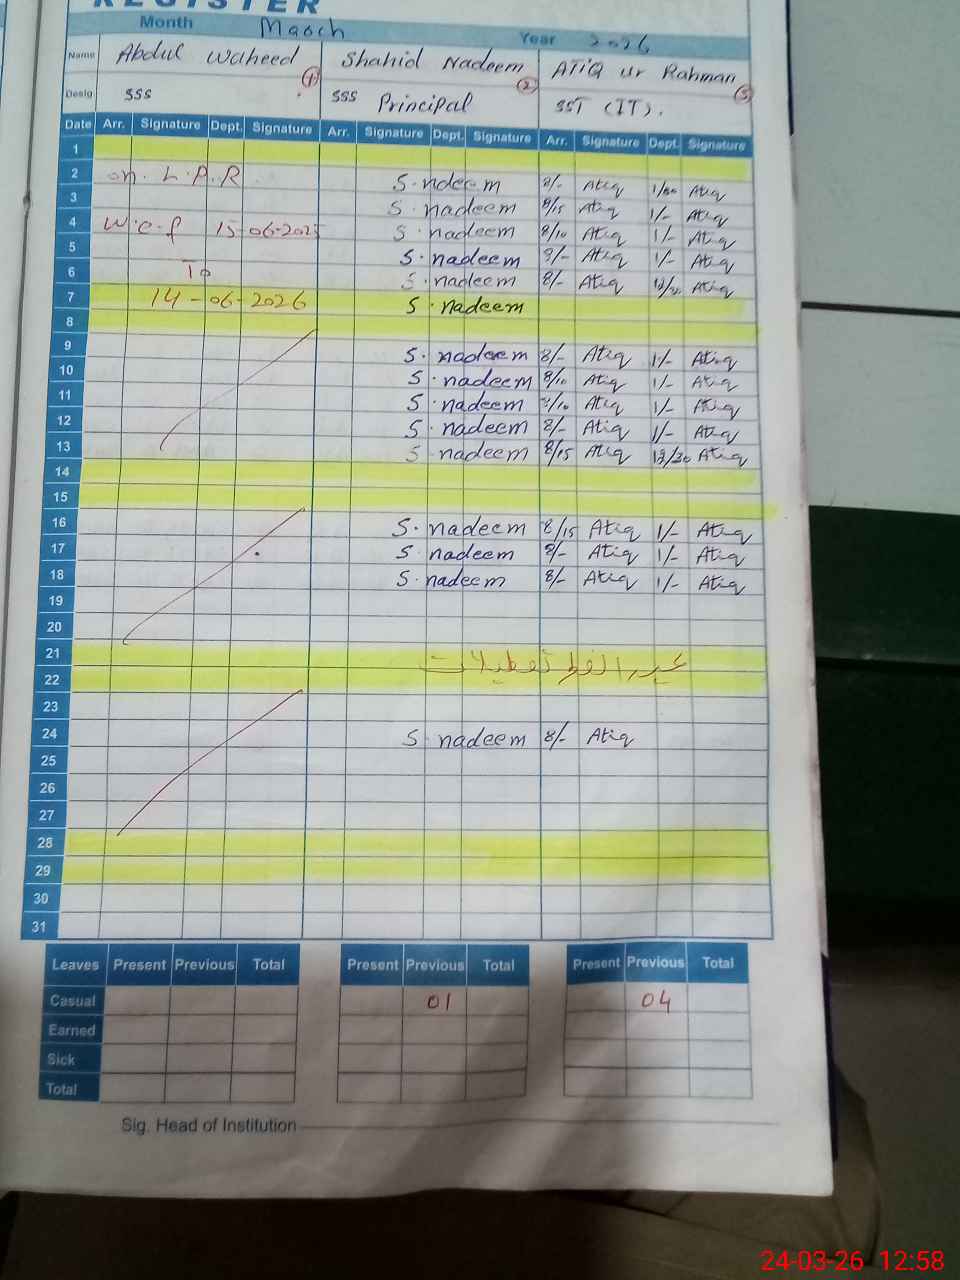 REGISTER
Month March Year 2026
Name Abdul Waheed (1) Shahid Nadeem (2) ATIQ ur Rahman (3)
Desig SSS SSS Principal SST (IT).
Date Arr. Signature Dept. Signature Arr. Signature Dept. Signature Arr. Signature Dept. Signature
1
2 on. L.P.R S.nadeem 8/- Atiq 1/00 Atiq
3 S.nadeem 8/15 Atiq 1/- Atiq
4 w.e.f 15-06-2025 S.nadeem 8/10 Atiq 1/- Atiq
5 S.nadeem 8/- Atiq 1/- Atiq
6 To S.nadeem 8/- Atiq 12/30 Atiq
7 14-06-2026 S.nadeem
8
9 S.nadeem 8/- Atiq 1/- Atiq
10 S.nadeem 8/10 Atiq 1/- Atiq
11 S.nadeem 8/10 Atiq 1/- Atiq
12 S.nadeem 8/- Atiq 1/- Atiq
13 S.nadeem 8/15 Atiq 12/30 Atiq
14
15
16 S.nadeem 8/15 Atiq 1/- Atiq
17 S.nadeem 8/- Atiq 1/- Atiq
18 S.nadeem 8/- Atiq 1/- Atiq
19
20
21 عید الفطر تعطیلات
22
23
24 S.nadeem 8/- Atiq
25
26
27
28
29
30
31
Leaves Present Previous Total Present Previous Total Present Previous Total
Casual 01 04
Earned
Sick
Total
Sig. Head of Institution
24-03-26 12:58